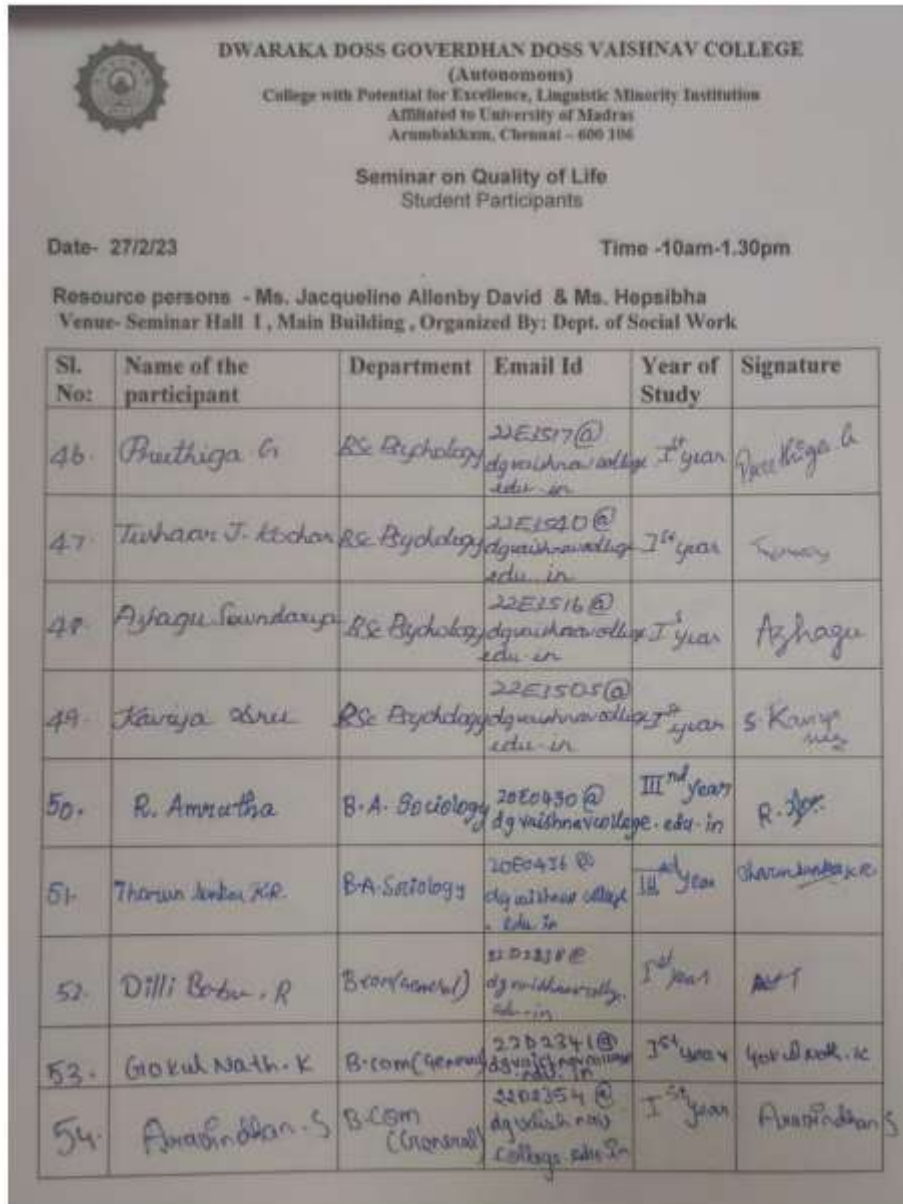 DWARAKA DOSS GOVERDHAN DOSS VAISHNAV COLLEGE
(Autonomous)
College with Potential for Excellence, Linguistic Minority Institution
Affiliated to University of Madras
Arumbakkam, Chennai – 600 106
Seminar on Quality of Life
Student Participants
Date- 27/2/23 Time -10am-1.30pm
Resource persons - Ms. Jacqueline Allenby David & Ms. Hepsibha
Venue- Seminar Hall I , Main Building , Organized By: Dept. of Social Work
Sl. No: Name of the participant Department Email Id Year of Study Signature
46. Preethiga G BSc Psychology 22E1517@ dgvaishnavcollege edu.in Ist year Preethiga G
47. Tushaar J. Kochar BSc Psychology 22E1540@ dgvaishnavcollege edu.in Ist year
48. Azhagu Soundarya BSc Psychology 22E1516@ dgvaishnavcollege edu.in Ist year Azhagu
49. Kavya Shree BSc Psychology 22E1505@ dgvaishnavcollege edu.in Ist year S
50. R. Amrutha B.A. Sociology 20E0430@ dgvaishnavcollege.edu.in IIInd year R.
51. Tharun K.R. B.A. Sociology 20E0436@ dgvaishnav college .edu.in year
52. Dilli Babu. R B.com(General) dgvaishnavcollege. edu.in Ist year
53. Gokul Nath. K B.com(General) 22D2341@ dgvaishnavcollege .edu.in Ist year Gokul Nath. K
54. Aravindhan. S B.Com (General) 22D2354@ dgvaish nav college.edu.in Ist year Aravindhan S